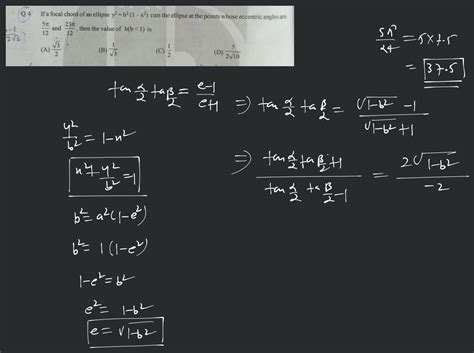 Q.4 If a focal chord of an ellipse y² = b² (1 – x²) cuts the ellipse at the points whose eccentric angles are
5π/12 and 23π/12, then the value of b(b < 1) is
(A) √3/2 (B) 1/√3 (C) 1/2 (D) 5/2√10
5π/24 = 5×7.5
= 37.5
tan α/2 tan β/2 = e-1/e+1
⇒ tan α/2 tan β/2 = √1-b² -1/√1-b² +1
y²/b² = 1-x²
x²+y²/b² = 1
⇒ tan α/2 tan β/2 +1/tan α/2 tan β/2 -1 = 2√1-b²/-2
b² = a²(1-e²)
b² = 1(1-e²)
1-e² = b²
e² = 1-b²
e = √1-b²